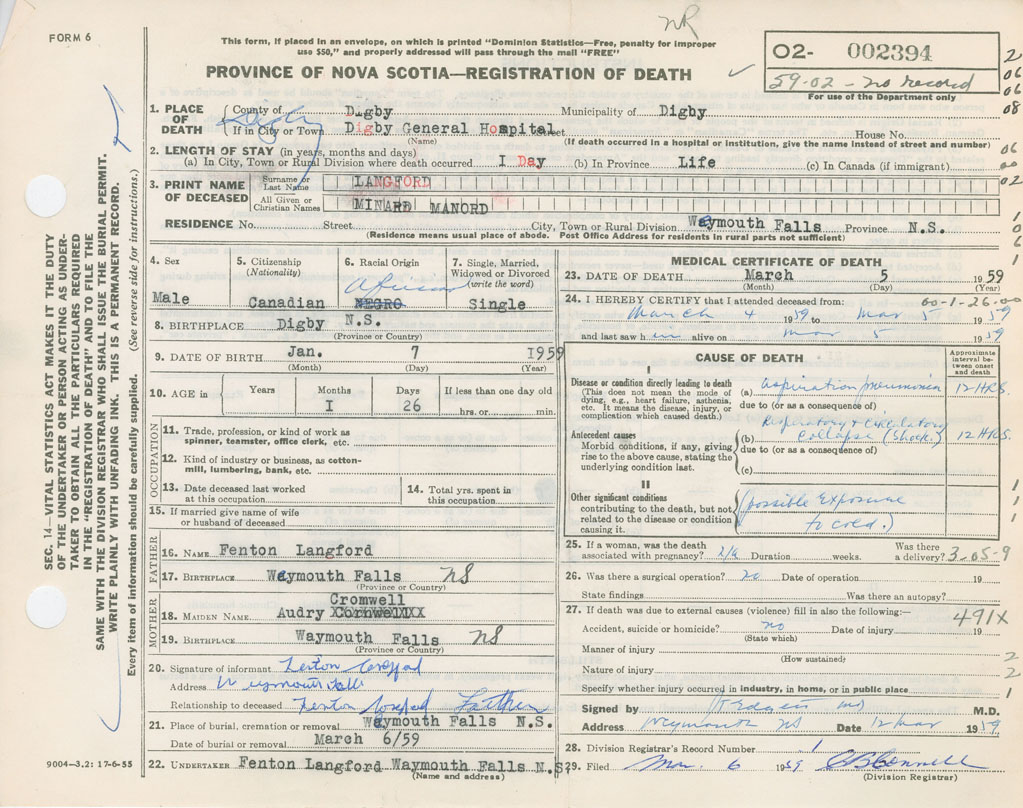 NR
FORM 6
This form, if placed in an envelope, on which is printed "Dominion Statistics—Free, penalty for improper
use $50," and properly addressed will pass through the mail "FREE"
PROVINCE OF NOVA SCOTIA—REGISTRATION OF DEATH
02- 002394
59-02 - no record
For use of the Department only
2
06
06
08
06
00
02
1
0
6
1
SEC. 14—VITAL STATISTICS ACT MAKES IT THE DUTY
OF THE UNDERTAKER OR PERSON ACTING AS UNDER-
TAKER TO OBTAIN ALL THE PARTICULARS REQUIRED
IN THE "REGISTRATION OF DEATH" AND TO FILE THE
SAME WITH THE DIVISION REGISTRAR WHO SHALL ISSUE THE BURIAL PERMIT.
WRITE PLAINLY WITH UNFADING INK. THIS IS A PERMANENT RECORD.
Every item of information should be carefully supplied. (See reverse side for instructions.)
1. PLACE OF DEATH County of Digby Municipality of Digby
Digby
If in City or Town Digby General Hospital Street House No.
(Name) (If death occurred in a hospital or institution, give the name instead of street and number)
2. LENGTH OF STAY (in years, months and days)
(a) In City, Town or Rural Division where death occurred I Day (b) In Province Life (c) In Canada (if immigrant)
3. PRINT NAME OF DECEASED Surname or Last Name LANGFORD
All Given or Christian Names MINARD MANORD
RESIDENCE No. Street City, Town or Rural Division Waymouth Falls Province N.S.
(Residence means usual place of abode. Post Office Address for residents in rural parts not sufficient)
4. Sex
Male
5. Citizenship
(Nationality)
Canadian
6. Racial Origin
NEGRO
7. Single, Married,
Widowed or Divorced
(write the word)
Single
8. BIRTHPLACE Digby N.S.
(Province or Country)
9. DATE OF BIRTH Jan. 7 1959
(Month) (Day) (Year)
10. AGE in Years Months Days If less than one day old
I 26 hrs. or min.
OCCUPATION
11. Trade, profession, or kind of work as
spinner, teamster, office clerk, etc.
12. Kind of industry or business, as cotton-
mill, lumbering, bank, etc.
13. Date deceased last worked
at this occupation
14. Total yrs. spent in
this occupation
15. If married give name of wife
or husband of deceased
FATHER
16. NAME Fenton Langford
17. BIRTHPLACE Waymouth Falls NS
(Province or Country)
MOTHER
Cromwell
18. MAIDEN NAME Audry CornwellXXX
19. BIRTHPLACE Waymouth Falls NS
(Province or Country)
20. Signature of informant Fenton
Address Weymouth Falls
Relationship to deceased Fenton Father
21. Place of burial, cremation or removal Waymouth Falls N.S.
Date of burial or removal March 6/59
22. UNDERTAKER Fenton Langford Waymouth Falls N.S.
(Name and address)
9004—3.2: 17-6-55
MEDICAL CERTIFICATE OF DEATH
23. DATE OF DEATH March 5 1959
(Month) (Day) (Year)
24. I HEREBY CERTIFY that I attended deceased from: 00-1-26-00
March 4 1959 to Mar 5 1959
and last saw him alive on Mar 5 1959
CAUSE OF DEATH
Approximate
interval be-
tween onset
and death
I
Disease or condition directly leading to death
(This does not mean the mode of
dying, e.g., heart failure, asthenia,
etc. It means the disease, injury, or
complication which caused death.)
(a) aspiration pneumonia 12 HRS.
due to (or as a consequence of)
Antecedent causes
Morbid conditions, if any, giving
rise to the above cause, stating the
underlying condition last.
Respiratory + Circulatory
(b) collapse (shock.) 12 HRS
due to (or as a consequence of)
(c)
II
Other significant conditions
contributing to the death, but not
related to the disease or condition
causing it.
(possible Exposure
to cold.)
1
1
25. If a woman, was the death
associated with pregnancy? n/a Duration weeks. Was there
a delivery? 3-05-9
26. Was there a surgical operation? no Date of operation 19
State findings Was there an autopsy?
27. If death was due to external causes (violence) fill in also the following:— 491X
Accident, suicide or homicide? no Date of injury 19
(State which)
Manner of injury 2
(How sustained)
Nature of injury 2
Specify whether injury occurred in industry, in home, or in public place 1
Signed by M.D.
Address Weymouth NS Date 12 Mar 1959
28. Division Registrar's Record Number 1
29. Filed Mar. 6 1959
(Division Registrar)